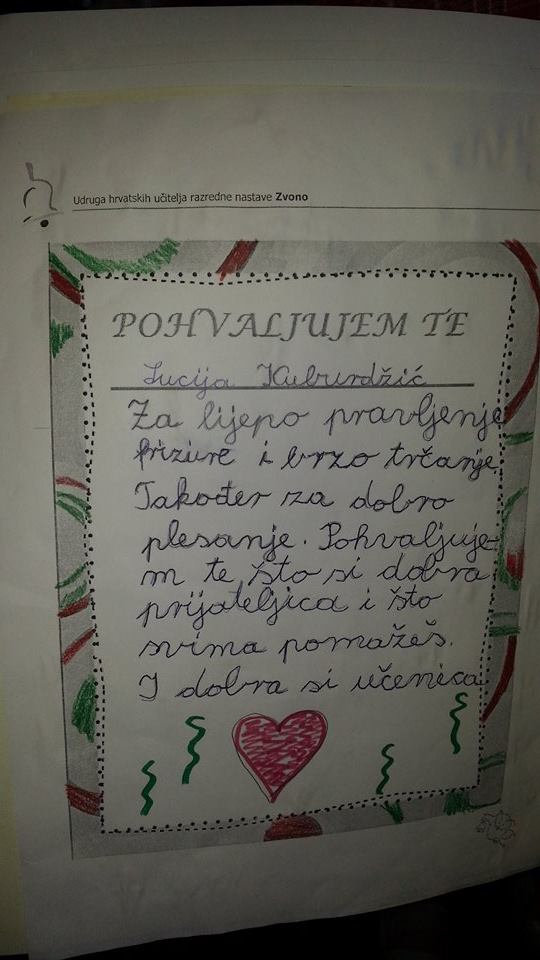 Udruga hrvatskih učitelja razredne nastave Zvono
POHVALJUJEM TE
Lucija Kuburdžić
Za lijepo pravljenje
frizure i brzo trčanje.
Također za dobro
plesanje. Pohvaljuje-
m te što si dobra
prijateljica i što
svima pomažeš.
I dobra si učenica